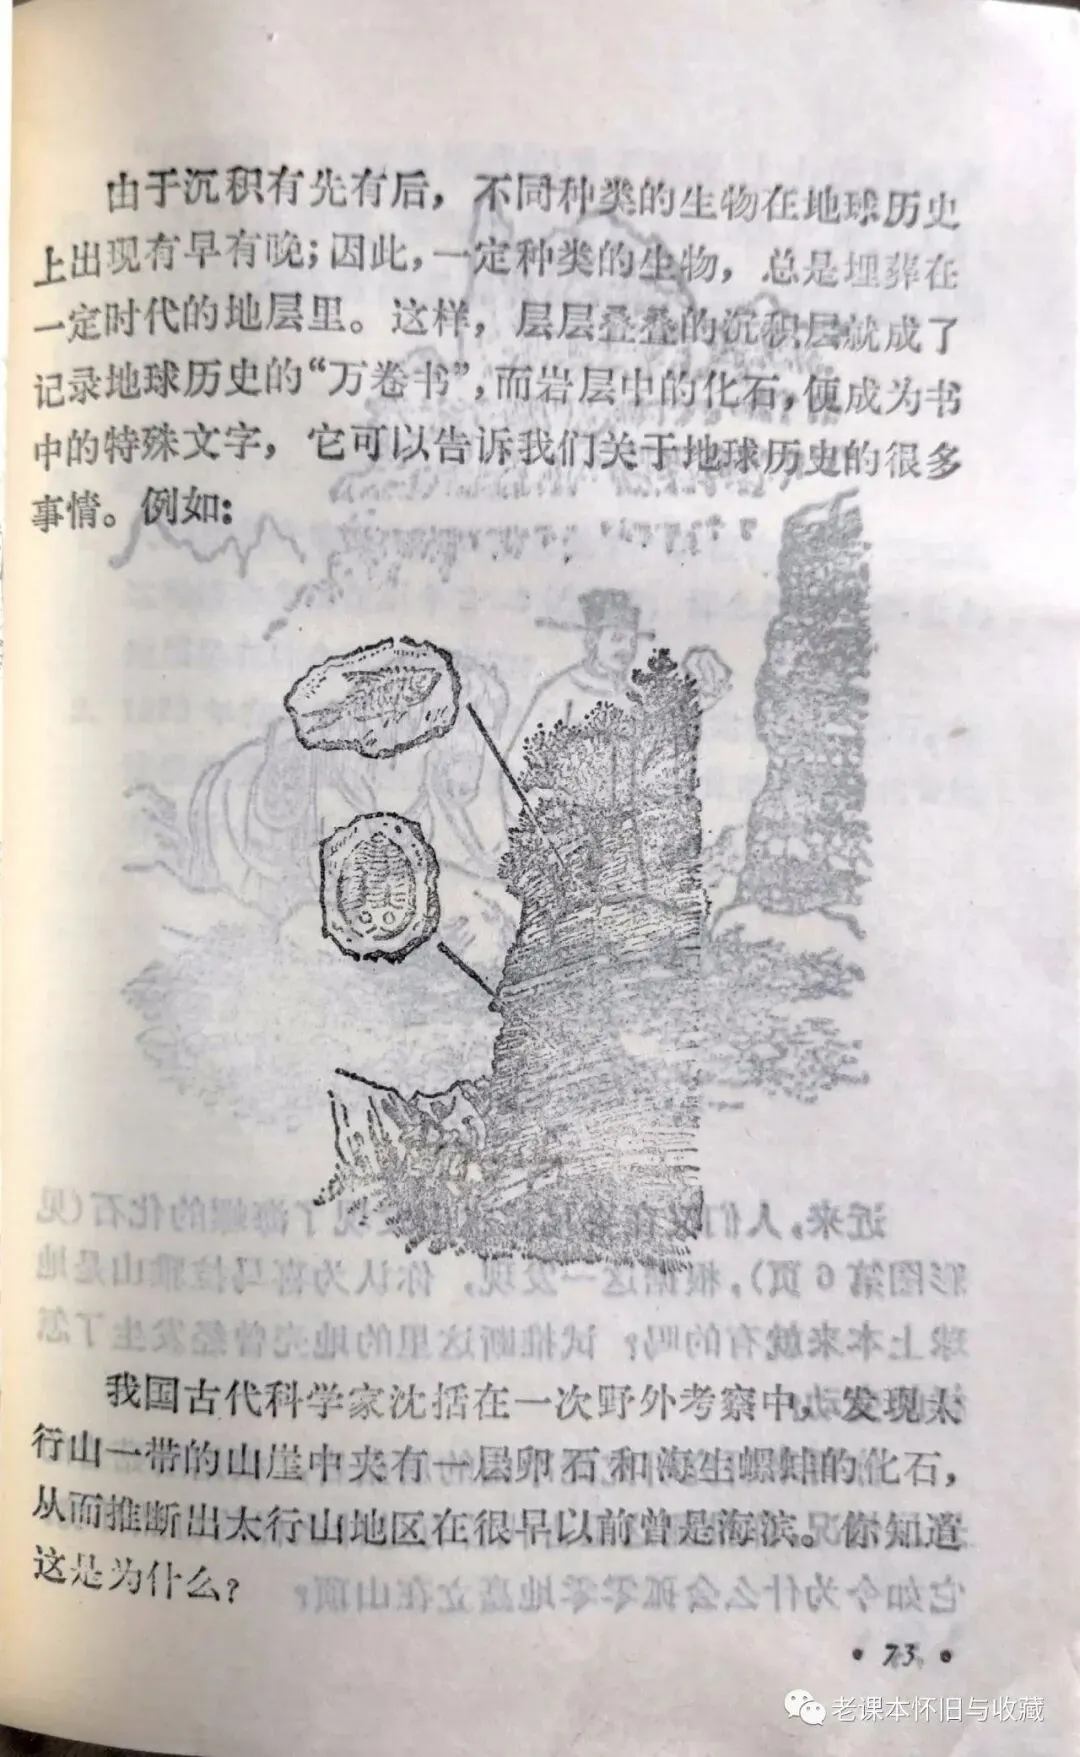 由于沉积有先有后，不同种类的生物在地球历史
上出现有早有晚；因此，一定种类的生物，总是埋葬在
一定时代的地层里。这样，层层叠叠的沉积层就成了
记录地球历史的“万卷书”，而岩层中的化石，便成为书
中的特殊文字，它可以告诉我们关于地球历史的很多
事情。例如：
我国古代科学家沈括在一次野外考察中，发现太
行山一带的山崖中夹有一层卵石和海生螺蚌的化石，
从而推断出太行山地区在很早以前曾是海滨。你知道
这是为什么？
• 73 •
老课本怀旧与收藏